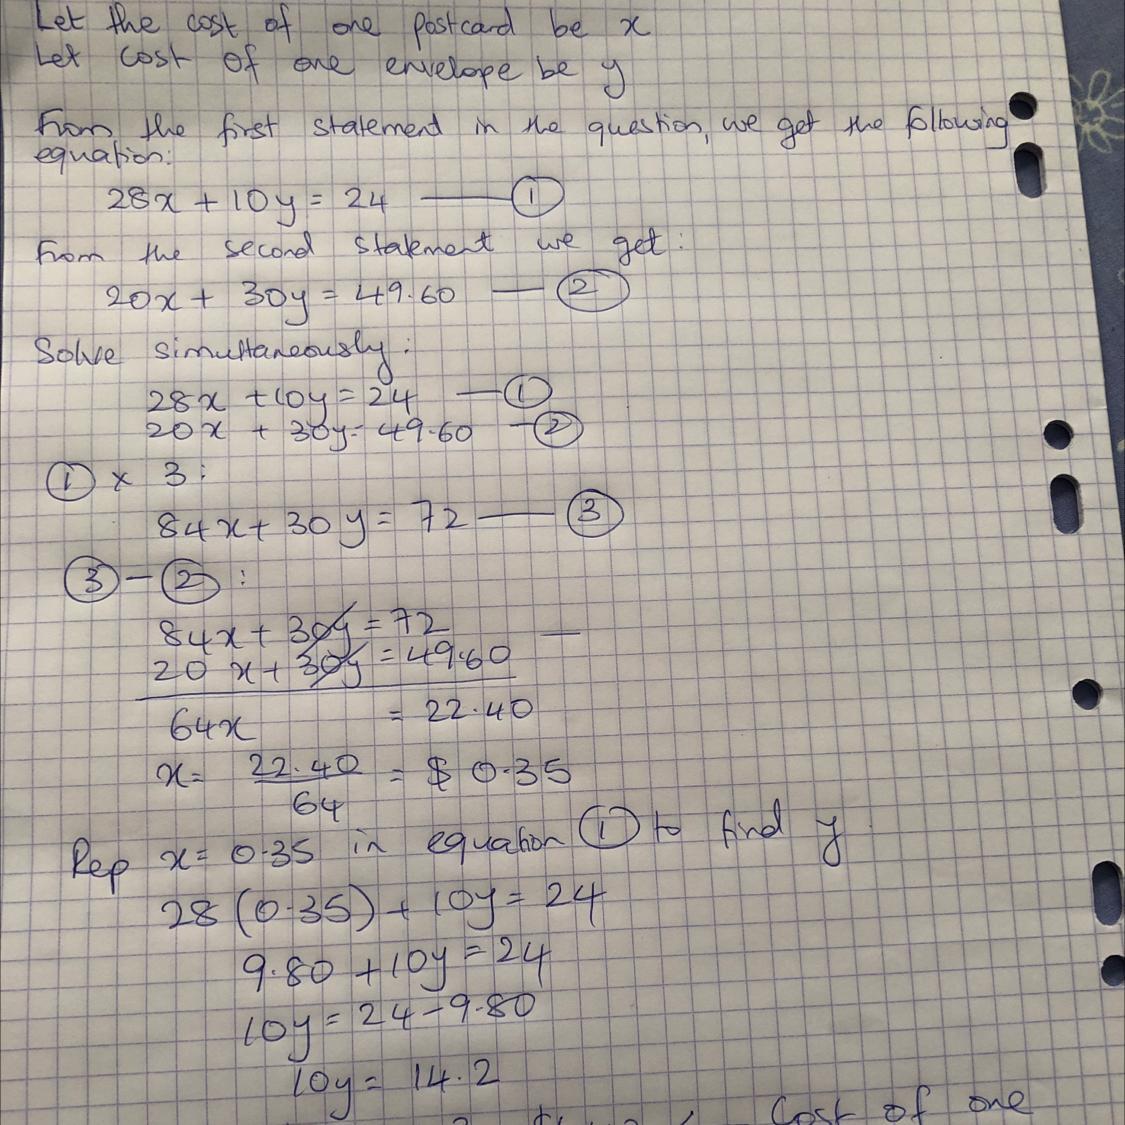 Let the cost of one postcard be x
Let cost of one envelope be y
From the first statement in the question, we get the following
equation:
28x + 10y = 24 —— ①
From the second statement we get:
20x + 30y = 49.60 — ②
Solve simultaneously:
28x + 10y = 24 — ①
20x + 30y = 49.60 — ②
① x 3:
84x + 30y = 72 —— ③
③ - ② :
84x + 30y = 72 —
20x + 30y = 49.60
64x = 22.40
x = 22.40 = $ 0.35
64
Rep x = 0.35 in equation ① to find y
28 (0.35) + 10y = 24
9.80 + 10y = 24
10y = 24 - 9.80
10y = 14.2
Cost of one